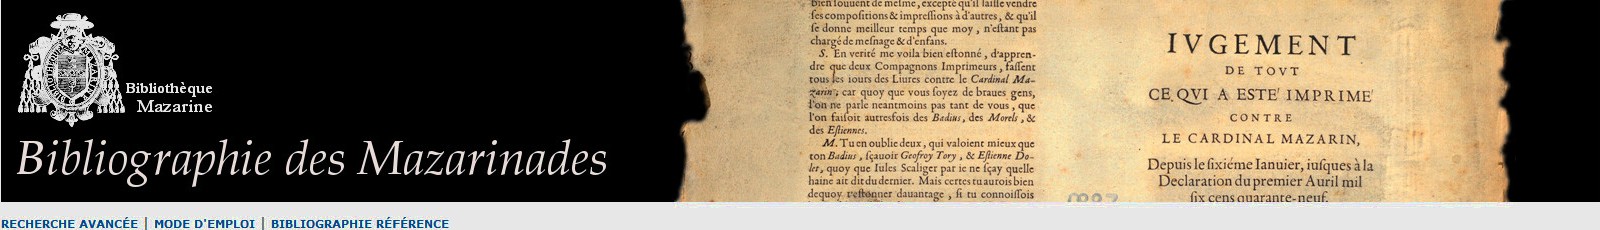 Bibliothèque
Mazarine
Bibliographie des Mazarinades
bien souuent de mesme, excepté qu'il laisse vendre
ſes compoſitions & impreſſions à d'autres, & qu'il
ſe donne meilleur temps que moy, n'eſtant pas
chargé de meſnage & d'enfans.
S. En verité me voila bien eſtonné, d'appren-
dre que deux Compagnons Imprimeurs, faſſent
tous les iours des Liures contre le Cardinal Ma-
zarin; car quoy que vous ſoyez de braues gens,
l'on ne parle neantmoins pas tant de vous, que
l'on faiſoit autresfois des Badius, des Morels, &
des Eſtiennes.
M. Tu en oublie deux, qui valoient mieux que
ton Badius, ſçauoir Geofroy Tory, & Eſtienne Do-
let, quoy que Iules Scaliger par ie ne ſçay quelle
haine ait dit du dernier. Mais certes tu aurois bien
dequoy t'eſtonner dauantage, ſi tu connoiſſois
IVGEMENT
DE TOVT
CE QVI A ESTE' IMPRIME'
CONTRE
LE CARDINAL MAZARIN,
Depuis le ſixiéme Ianuier, iuſques à la
Declaration du premier Auril mil
ſix cens quarante-neuf.
RECHERCHE AVANCÉE | MODE D'EMPLOI | BIBLIOGRAPHIE RÉFÉRENCE